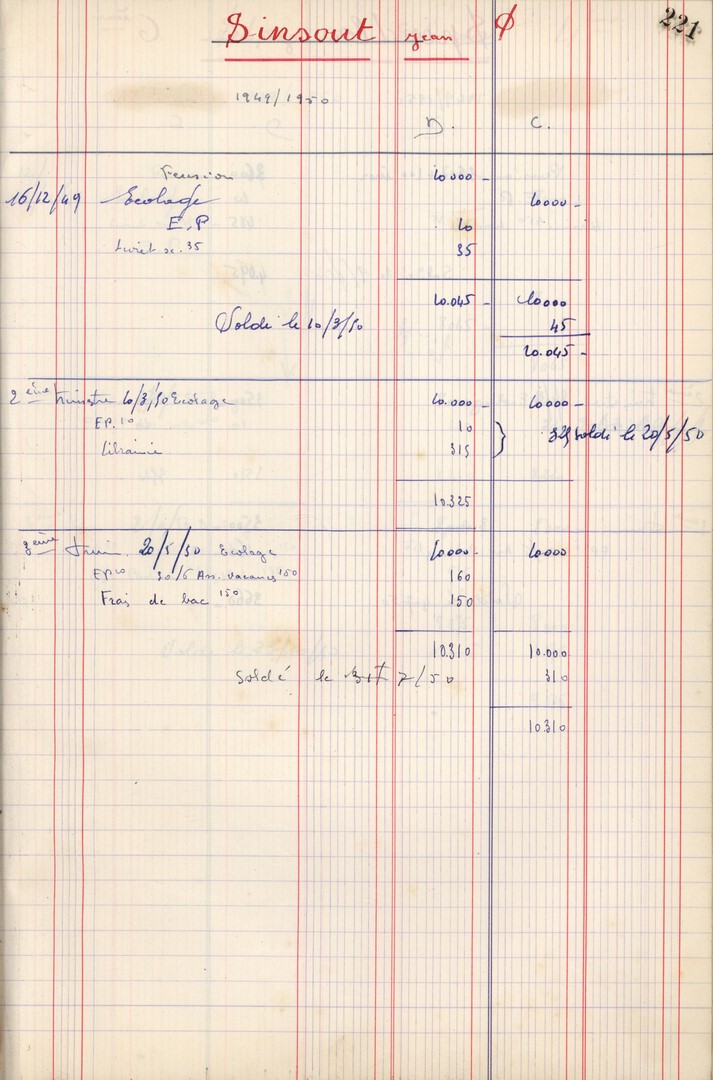 Sinsout Jean ϕ 221
1949/1950
D. C.
Pension 10000 -
16/12/49 Ecolage 10000 -
E.P 10
Livret sc. 35 35
10.045 - 10000
Soldé le 10/3/50 45
10.045 -
2ème trimestre 10/3/50 Ecolage 10.000 - 10000 -
EP. 10 10 } 325 soldé le 20/5/50
Librairie 315
10.325
3ème trim. 20/5/50 Ecolage 10000 - 10000
EP 10 30/6 Ass. vacances 150 160
Frais de bac 150 150
10.310 10.000
Soldé le 7/50 310
10.310